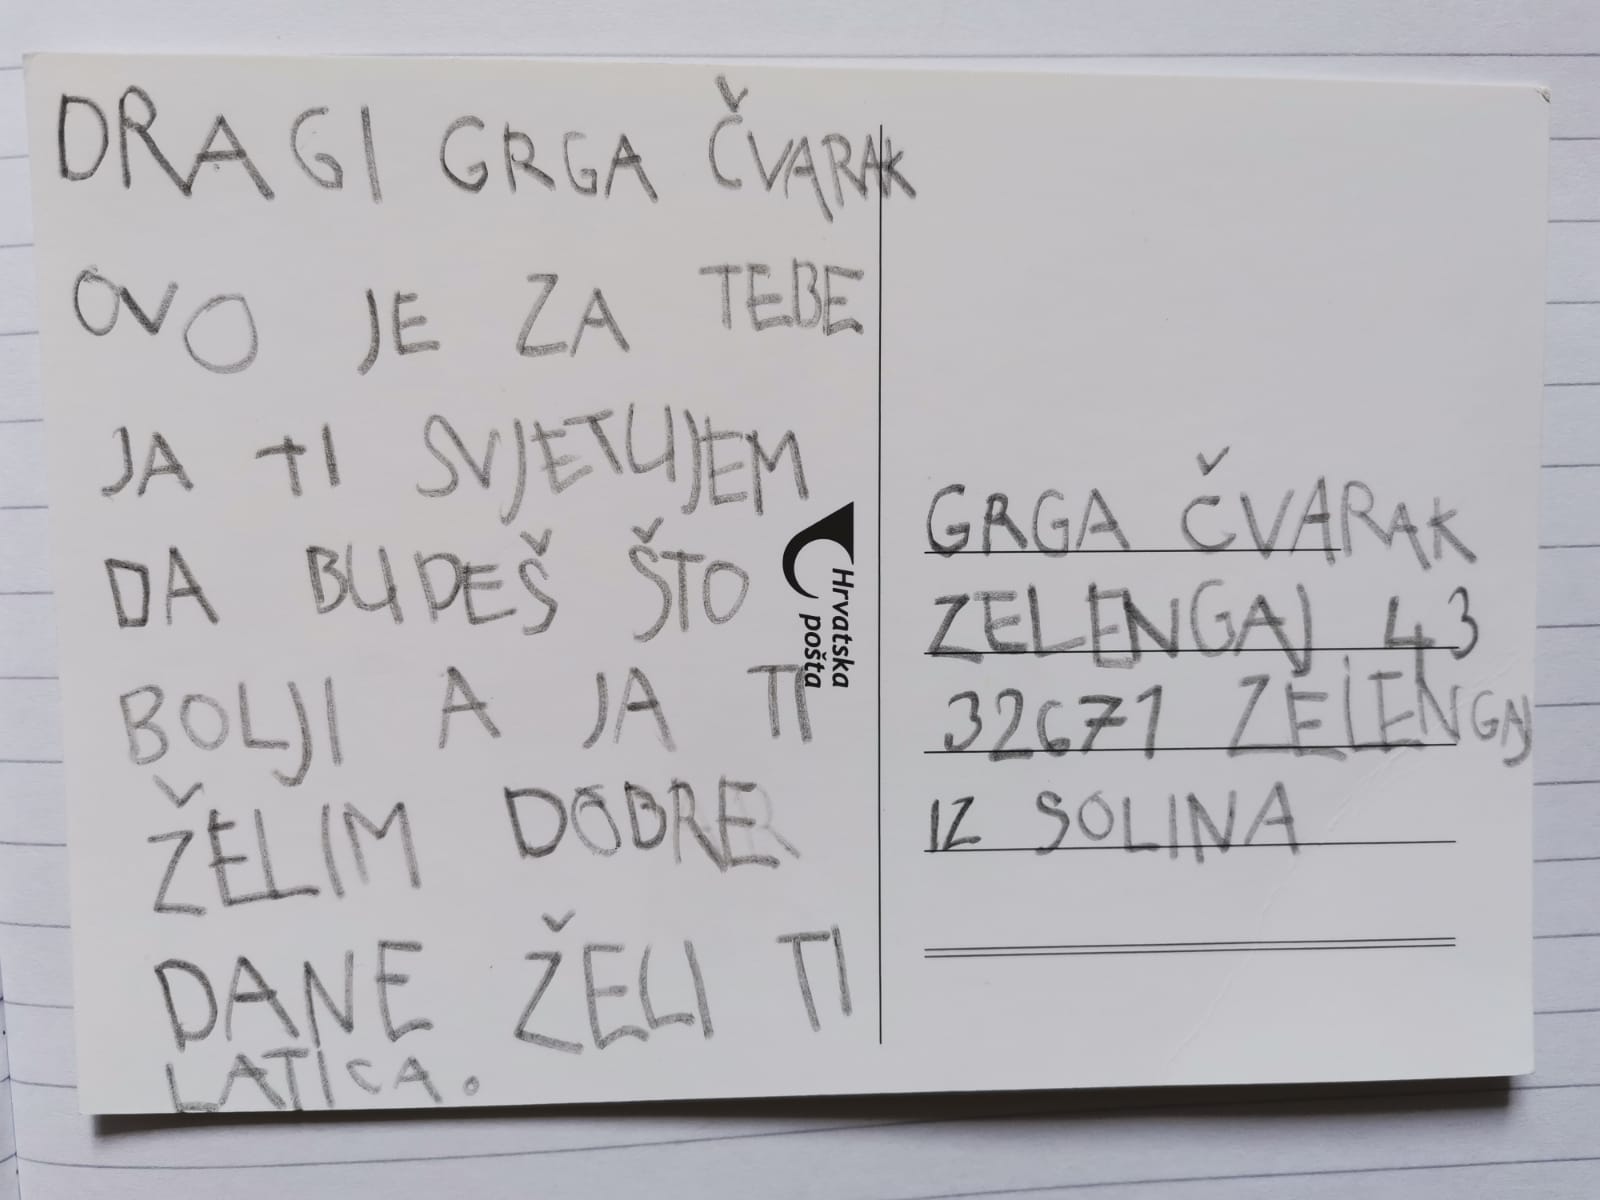 DRAGI GRGA ČVARAK
OVO JE ZA TEBE
JA TI SVJETUJEM
DA BUDEŠ ŠTO
BOLJI A JA TI
ŽELIM DOBRE
DANE ŽELI TI
LATICA.
Hrvatska
pošta
GRGA ČVARAK
ZELENGAJ 43
32671 ZELENGAJ
IZ SOLINA